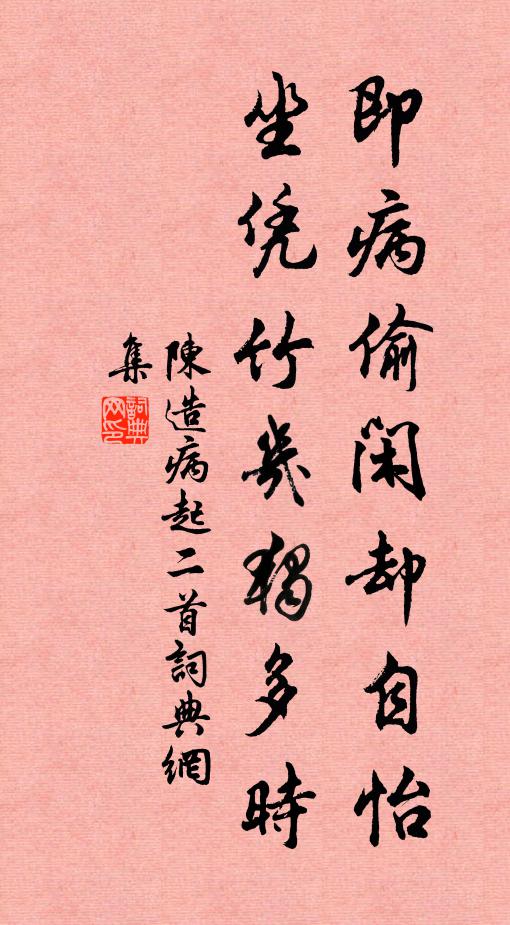 即病偷閑却自怡
坐凭竹几獨多時
陳造病起二首詞典網
集
詞典
网印